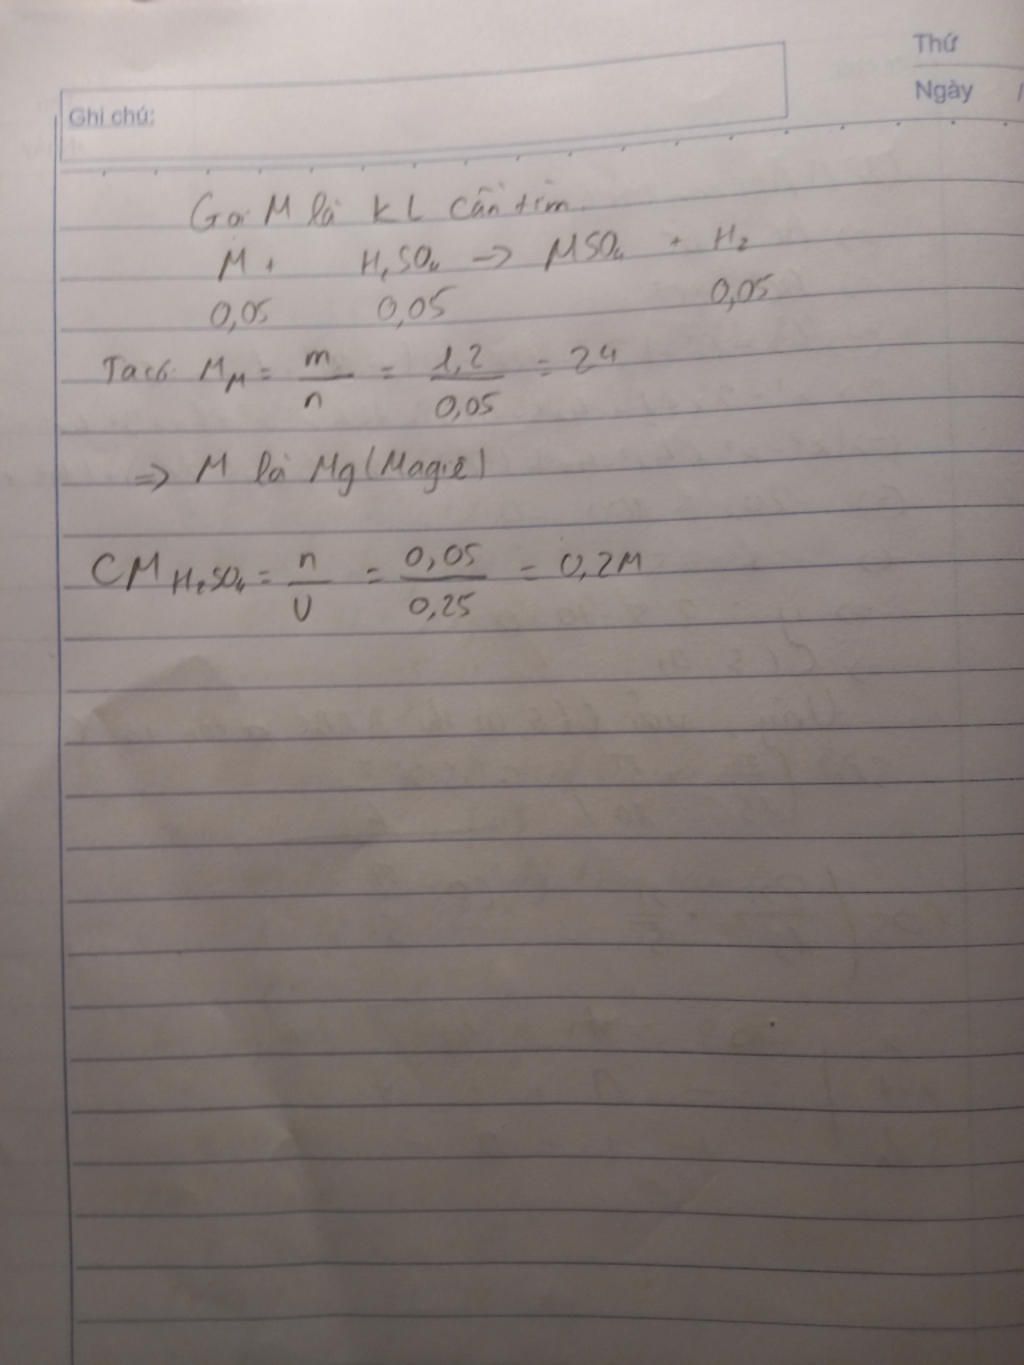 Thứ
Ngày /
Ghi chú:
Gọi M là KL cần tìm.
M + H₂SO₄ → MSO₄ + H₂
0,05 0,05 0,05
Ta có: M_M = m/n = 1,2/0,05 = 24
⇒ M là Mg (Magiê)
CM H₂SO₄ = n/V = 0,05/0,25 = 0,2M